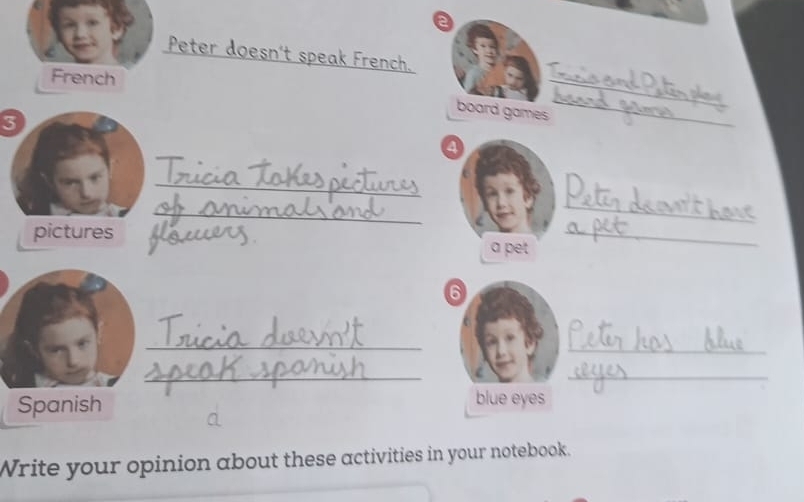 Peter doesn't speak French.
French
2
Tricia and Peter play
board games
board games
3
Tricia takes pictures
of animals and
flowers.
pictures
4
Peter doesn't have
a pet
a pet
Tricia doesn't
speak spanish
Spanish
6
Peter has blue
eyes
blue eyes
d
Write your opinion about these activities in your notebook.